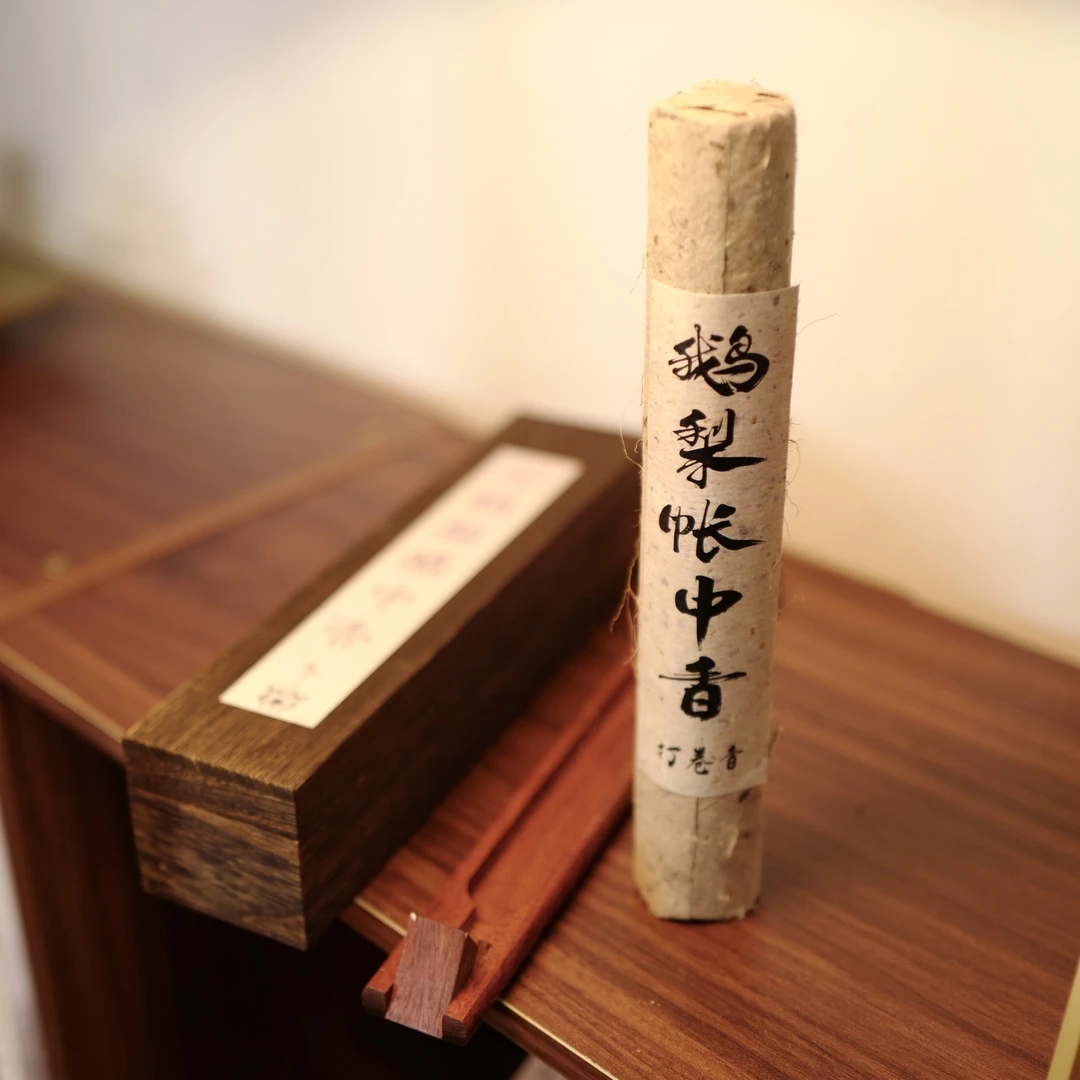 鹅梨帐中香
打卷香